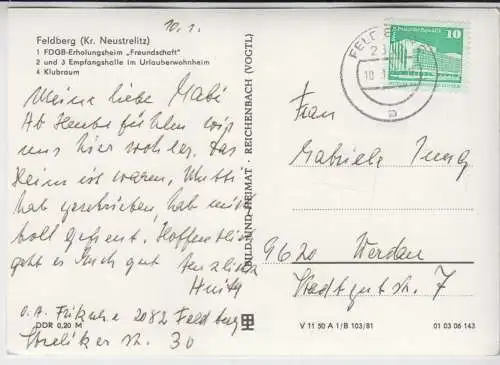 10.1.
Feldberg (Kr. Neustrelitz)
1 FDGB-Erholungsheim „Freundschaft"
2 und 3 Empfangshalle im Urlauberwohnheim
4 Klubraum
Meine liebe Gabi
Ab Heute fühlen wir
uns hier wohler. Das
Heim ist warm, Mutti
hab geschrieben, hab mich
toll gefreut. Hoffentlich
geht es Euch gut
Herzlichst
2082 Feldberg
Strelitzer str. 30
DDR 0,20 M
BILD UND HEIMAT · REICHENBACH (VOGTL)
10
Frau
Gabriele Jung
9620 Werdau
Stadtgutstr. 7
V 11 50 A 1/B 103/81
01 03 06 143